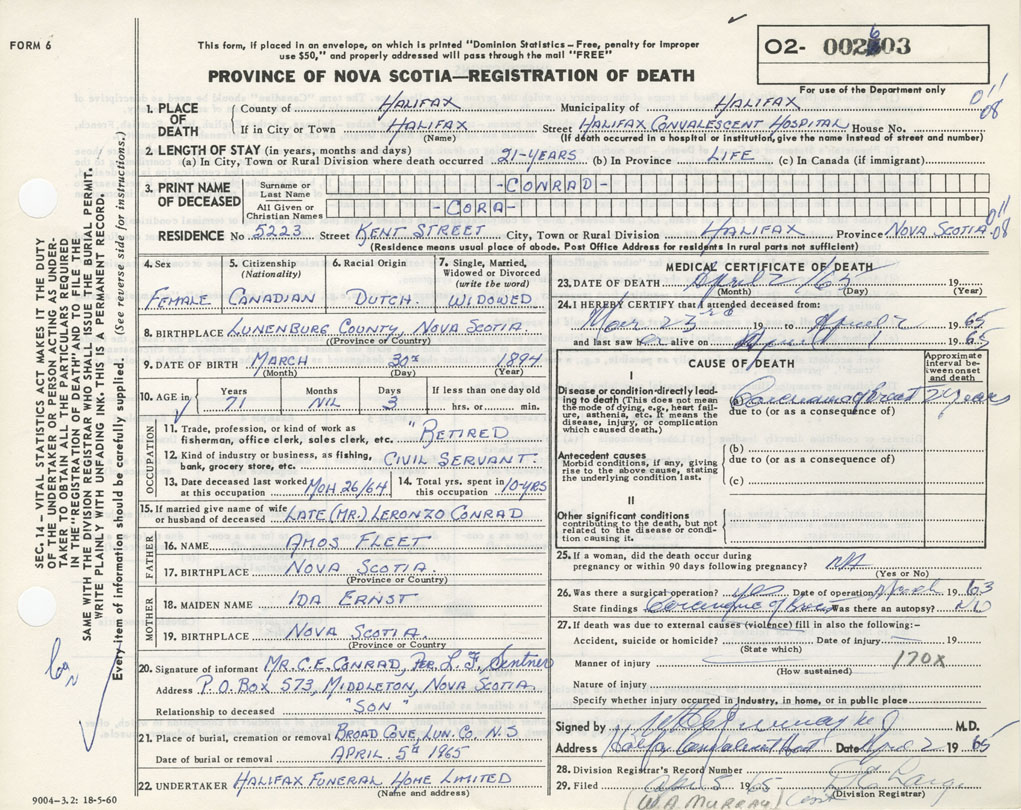 FORM 6
This form, if placed in an envelope, on which is printed "Dominion Statistics – Free, penalty for improper
use $50," and properly addressed will pass through the mail "FREE"
O2- 002603
For use of the Department only
PROVINCE OF NOVA SCOTIA—REGISTRATION OF DEATH
SEC. 14 – VITAL STATISTICS ACT MAKES IT THE DUTY
OF THE UNDERTAKER OR PERSON ACTING AS UNDER-
TAKER TO OBTAIN ALL THE PARTICULARS REQUIRED
IN THE "REGISTRATION OF DEATH" AND TO FILE THE
SAME WITH THE DIVISION REGISTRAR WHO SHALL ISSUE THE BURIAL PERMIT.
WRITE PLAINLY WITH UNFADING INK. THIS IS A PERMANENT RECORD.
Every item of information should be carefully supplied. (See reverse side for instructions.)
1. PLACE OF DEATH
County of HALIFAX Municipality of HALIFAX
If in City or Town HALIFAX Street HALIFAX CONVALESCENT HOSPITAL House No.
(Name) (If death occurred in hospital or institution, give the name instead of street and number)
2. LENGTH OF STAY (in years, months and days)
(a) In City, Town or Rural Division where death occurred 21-YEARS (b) In Province LIFE (c) In Canada (if immigrant)
3. PRINT NAME OF DECEASED
Surname or Last Name -CONRAD-
All Given or Christian Names -CORA-
RESIDENCE No 5223 Street KENT STREET City, Town or Rural Division HALIFAX Province NOVA SCOTIA
(Residence means usual place of abode. Post Office Address for residents in rural parts not sufficient)
4. Sex
FEMALE
5. Citizenship (Nationality)
CANADIAN
6. Racial Origin
DUTCH.
7. Single, Married, Widowed or Divorced (write the word)
WIDOWED
8. BIRTHPLACE LUNENBURG COUNTY, NOVA SCOTIA.
(Province or Country)
9. DATE OF BIRTH MARCH 30th 1894
(Month) (Day) (Year)
10. AGE in Years Months Days If less than one day old
71 NIL 3 hrs. or min.
OCCUPATION
11. Trade, profession, or kind of work as
fisherman, office clerk, sales clerk, etc. "RETIRED
12. Kind of industry or business, as fishing,
bank, grocery store, etc. CIVIL SERVANT.
13. Date deceased last worked
at this occupation MCH 26/64
14. Total yrs. spent in
this occupation 10-YRS
15. If married give name of wife
or husband of deceased LATE (MR.) LERONZO CONRAD
FATHER
16. NAME AMOS FLEET
17. BIRTHPLACE NOVA SCOTIA.
(Province or Country)
MOTHER
18. MAIDEN NAME IDA ERNST
19. BIRTHPLACE NOVA SCOTIA.
(Province or Country)
20. Signature of informant MR. C.E. CONRAD, PER L.F. Sentner
Address P.O. BOX 573, MIDDLETON, NOVA SCOTIA
Relationship to deceased "SON"
21. Place of burial, cremation or removal BROAD COVE, LUN. CO. N.S
Date of burial or removal APRIL 5th 1965
22. UNDERTAKER HALIFAX FUNERAL HOME LIMITED
(Name and address)
9004–3.2: 18-5-60
MEDICAL CERTIFICATE OF DEATH
23. DATE OF DEATH April 2/65 19
(Month) (Day) (Year)
24. I HEREBY CERTIFY that I attended deceased from:
Mar 23rd 19 to April 2 19 65
and last saw her alive on April 2 19 65
CAUSE OF DEATH
Approximate interval between onset and death
I
Disease or condition directly leading to death (This does not mean the mode of dying, e.g., heart failure, asthenia, etc. It means the disease, injury, or complication which caused death.)
(a) Carcinoma of Breast 2 years
due to (or as a consequence of)
Antecedent causes
Morbid conditions, if any, giving rise to the above cause, stating the underlying condition last.
(b)
due to (or as a consequence of)
(c)
II
Other significant conditions
contributing to the death, but not related to the disease or condition causing it.
25. If a woman, did the death occur during
pregnancy or within 90 days following pregnancy? NA
(Yes or No)
26. Was there a surgical operation? yes Date of operation April 19 63
State findings Carcinoma of Breast Was there an autopsy? NO
27. If death was due to external causes (violence) fill in also the following:–
Accident, suicide or homicide? Date of injury 19
(State which)
Manner of injury 170X
(How sustained)
Nature of injury
Specify whether injury occurred in industry, in home, or in public place
Signed by M.D.
Address Halifax Convalescent Hosp Date April 2 19 65
28. Division Registrar's Record Number
29. Filed April 5 1965
(Division Registrar)
(W.A. MURRAY)